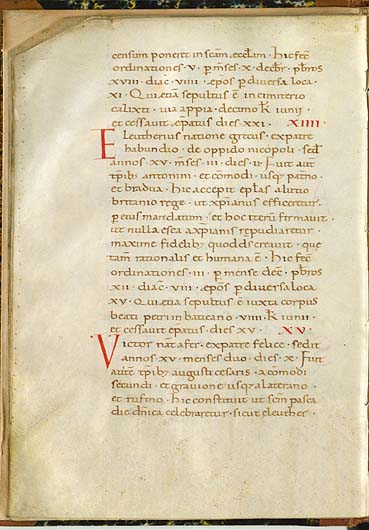 censum poneret in scām eccłam · hic fec̄
ordinationes · v · p mses · x · decebr̄ · pbros
xviii · diac̄ · viiii · epos p diversa loca ·
xi · Qui etiā sepultus ē in cimiterio
calixti · via appia · decimo k iunii ·
et cessavit epatus dies · xxi · XIIII ·
Eleutherius natione grecus · ex patre
habundio · de oppido nicopoli · sed̄
annos · xv · mses · iii · dies · ii · Fuit aut̄
tp̄ib; antonini · et comodi · usq; patno ·
et bradua · hic accepit epłas a lutio
britanio rege · ut xpianus efficeretur
p eius mandatum · et hoc iterū firmavit ·
ut nulla esca a xpianis repudiaretur ·
maxime fidelib; quod d̄s creavit · que
tam̄ rationalis et humana ē · hic fec̄
ordinationes · iii · p mense dec̄ · pbros
xii · diac̄ · viii · epos p diversa loca
xv · Qui etia sepultus ē iuxta corpus
beati petri in baticano · viiii · k iunii ·
et cessavit epatus · dies xv · XV ·
Victor nat̄ afer · ex patre felice · sedit
annos · xv · menses duo · dies · x · Fuit
autē tp̄ib; augusti cesaris · a comodi
secundi · et gravione usq; a laterano ·
et rufino · hic constituit ut scm̄ pasca
die dn̄ica celebraretur · sicut eleuther ·